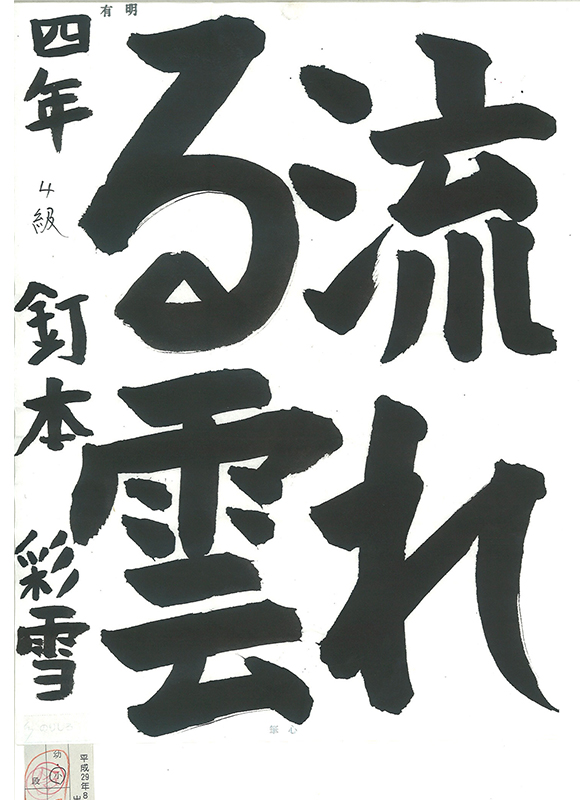 流れ
る雲
四年 4級 釘本 彩雪
有明
平成29年8
幼
小
段